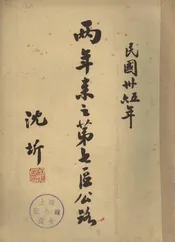 民國卅五六年
兩年來之第七區公路
沈圻